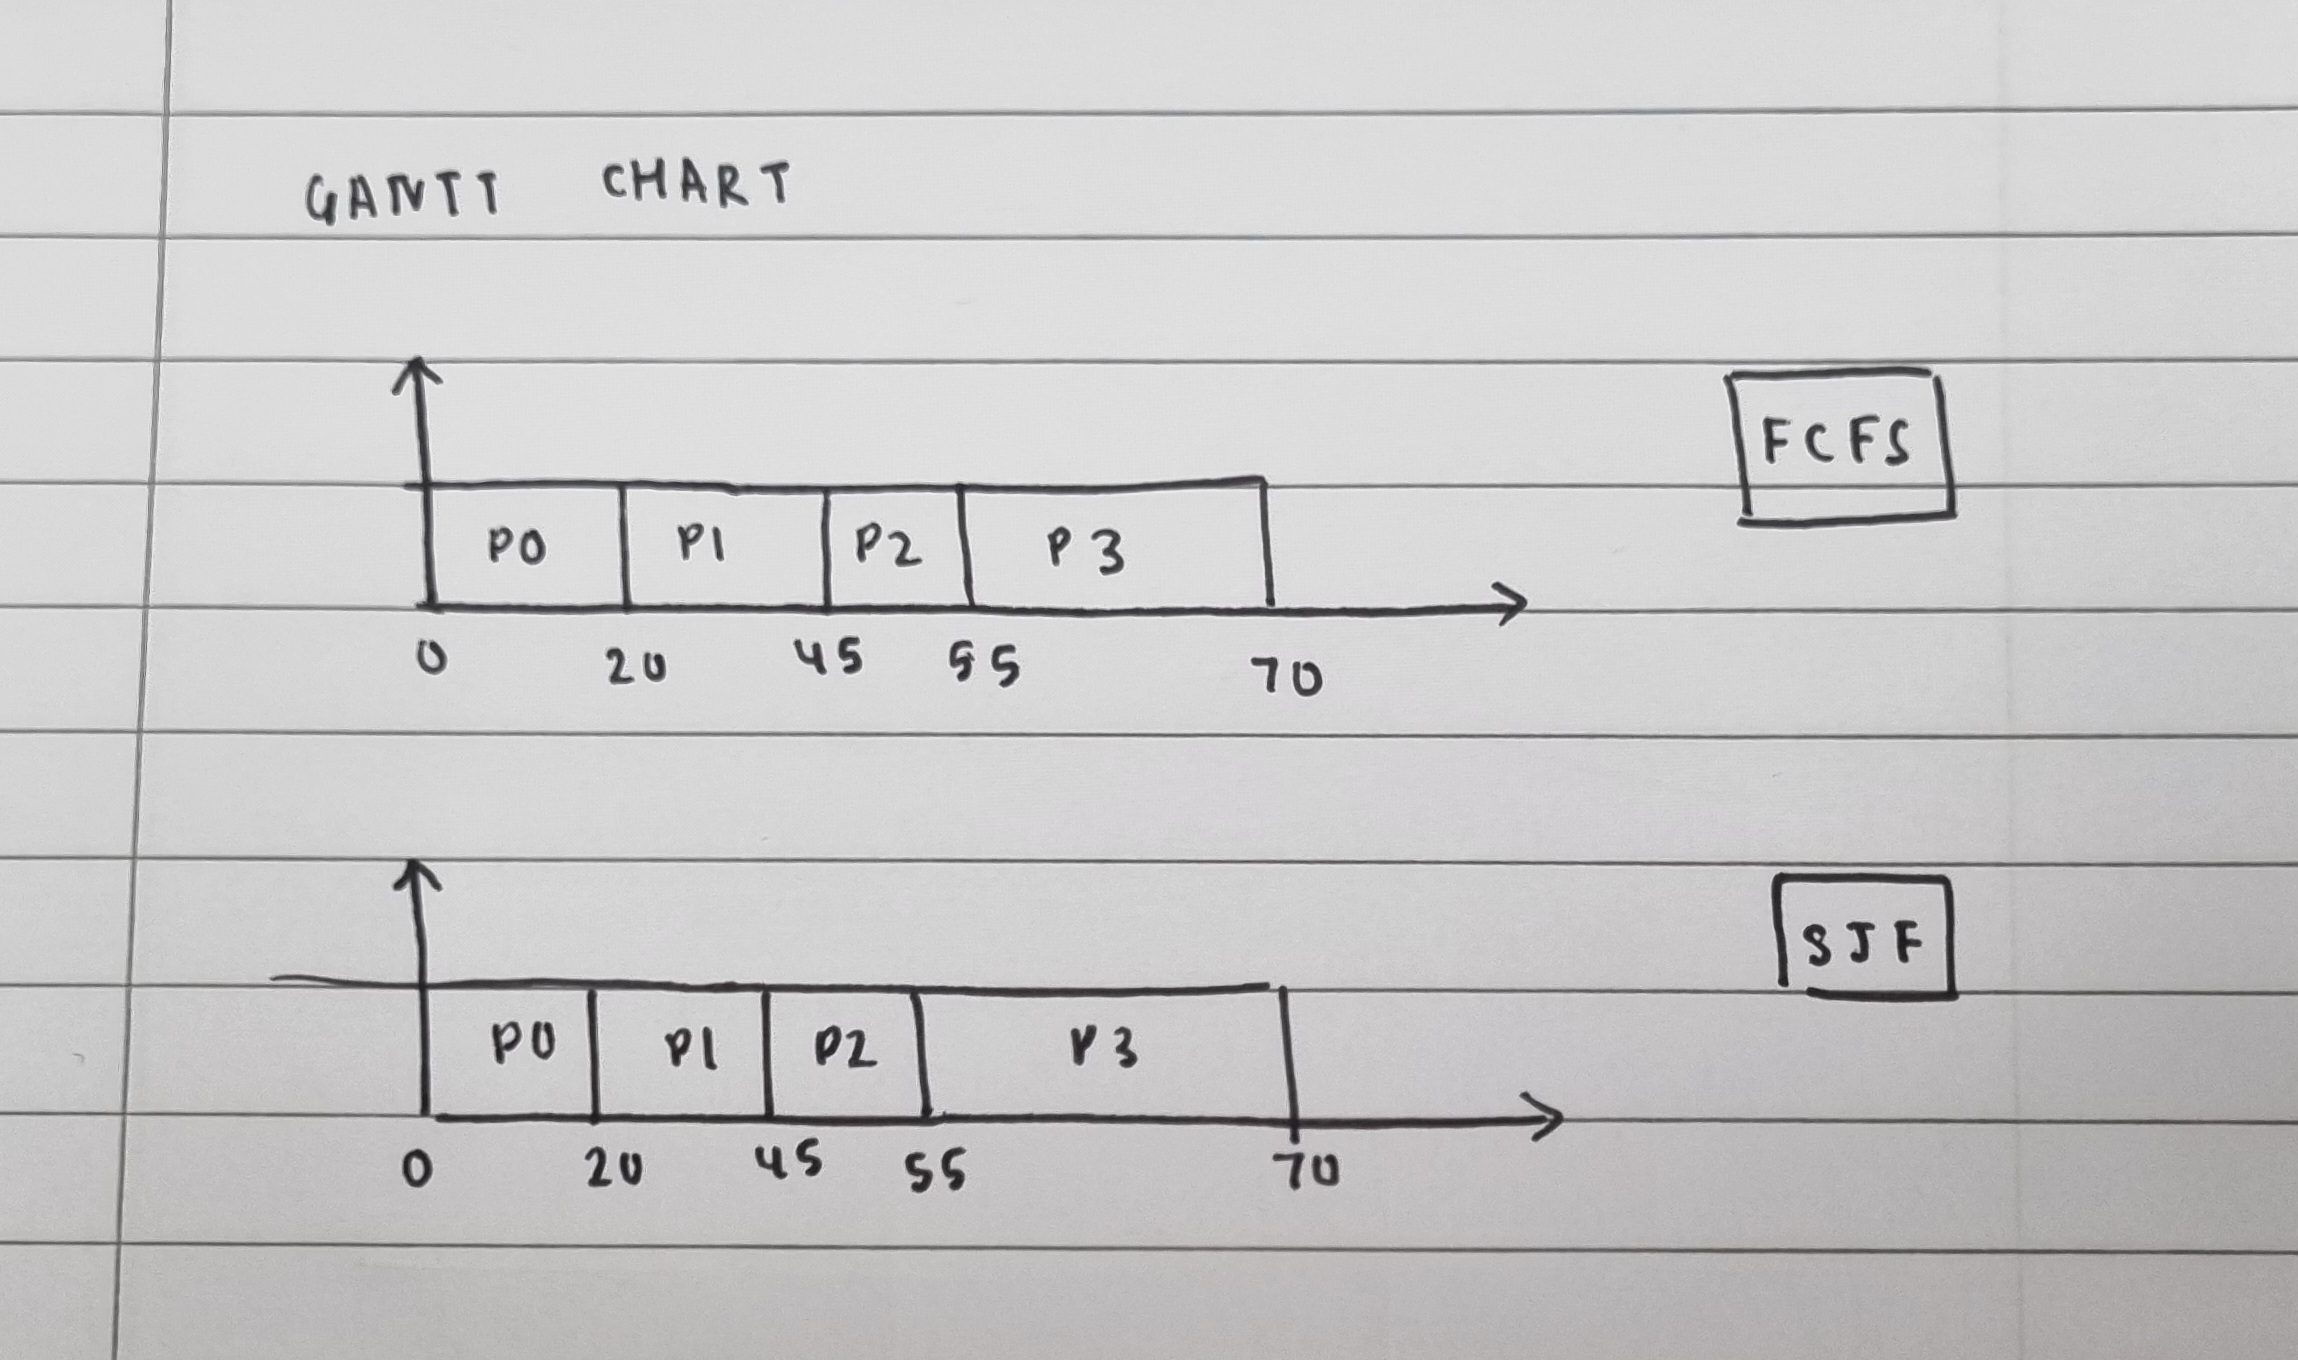 GANTT CHART
FCFS
P0 P1 P2 P3
0 20 45 55 70
SJF
P0 P1 P2 P3
0 20 45 55 70